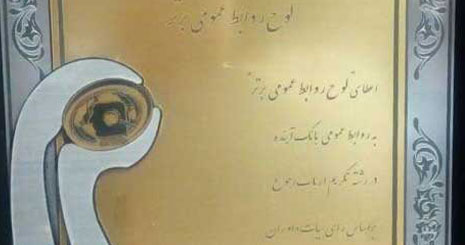 لوح روابط عمومی برتر
اعطای "لوح روابط عمومی برتر"
به روابط عمومی بانک آینده
در رشته تکریم ارباب رجوع
براساس رأی هیأت داوران